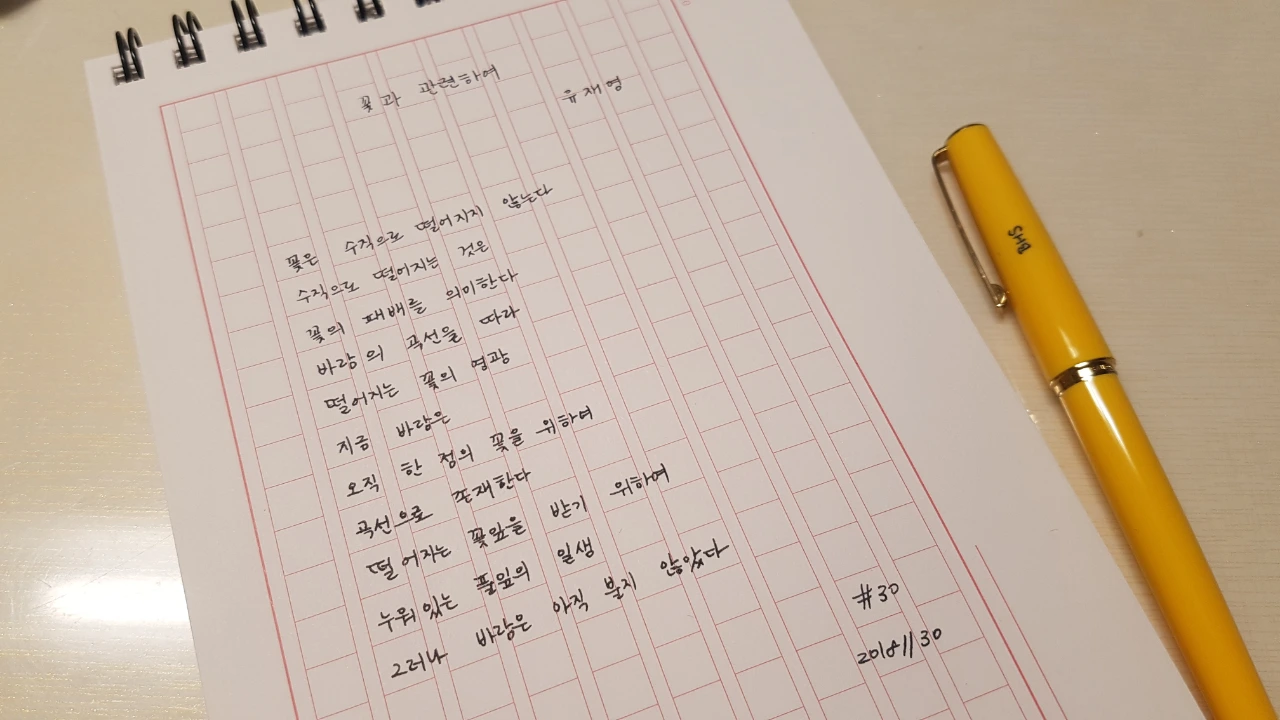 꽃과 관련하여
유재영
꽃은 수직으로 떨어지지 않는다
수직으로 떨어지는 것은
꽃의 패배를 의미한다
바람의 곡선을 따라
떨어지는 꽃의 영광
지금 바람은
오직 한 점의 꽃을 위하여
곡선으로 존재한다
떨어지는 꽃잎을 받기 위하여
누워있는 풀잎의 일생
그러나 바람은 아직 불지 않았다
#30
20181130
BHS